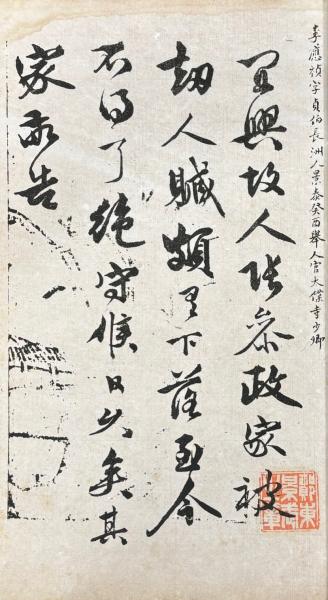 李應禎字貞伯長洲人景泰癸酉舉人官太僕寺少卿
宜興故人張參政家被
劫人贓頗有下落至今
不得了絕守候日久矣其
家亦告